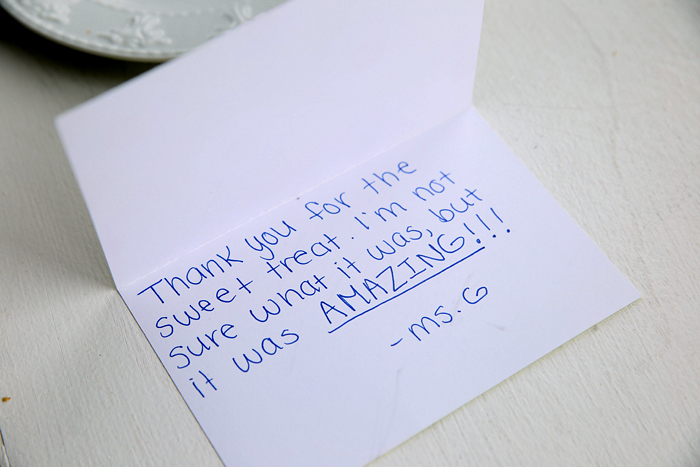 Thank you for the
sweet treat. I'm not
sure what it was, but
it was AMAZING!!!
-ms. G